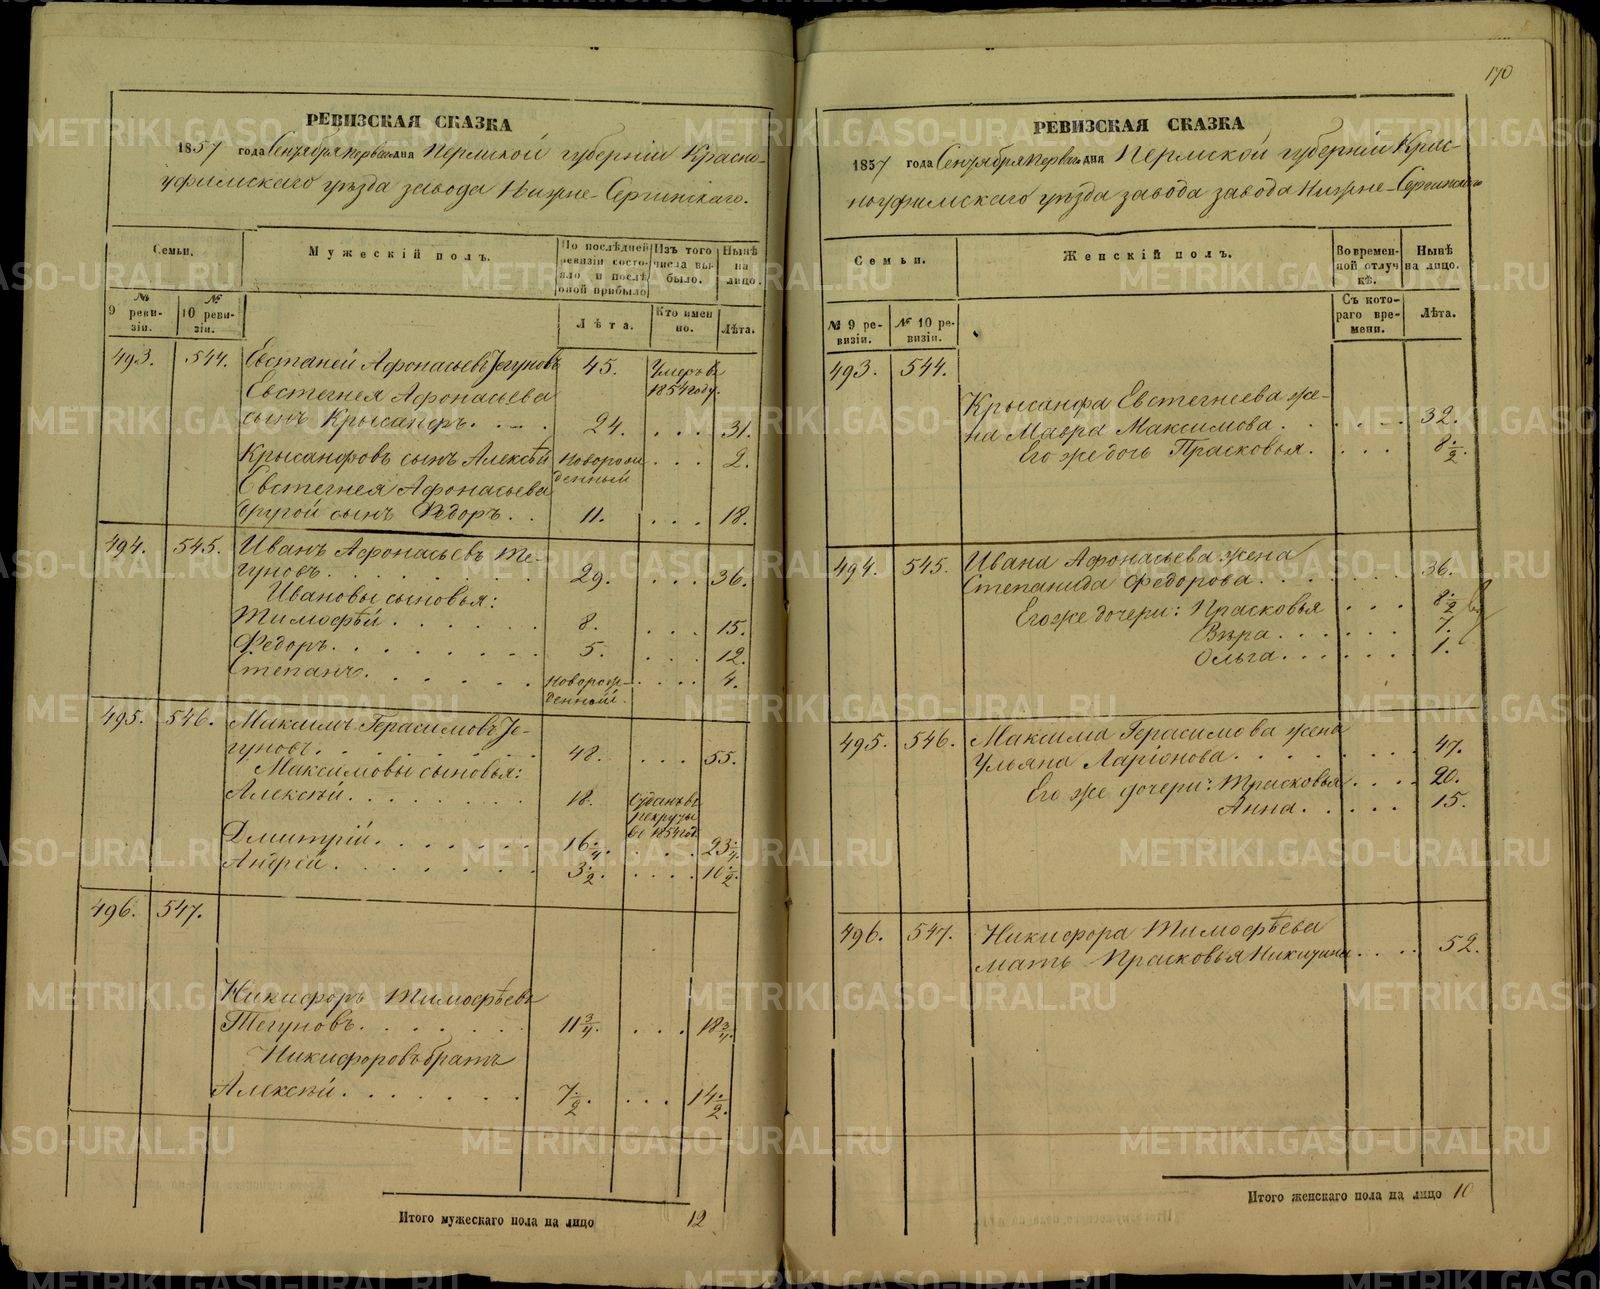 РЕВИЗСКАЯ СКАЗКА
1857 года Сентября первого дня Пермской губернии Красно-
уфимскаго уѣзда завода Нижне-Сергинскаго.
Семьи.
Мужескій полъ.
По послѣдней ревизіи состояло и послѣ оной прибыло
Изъ того числа выбыло.
Нынѣ на лицо.
№ 9 ревизіи.
№ 10 ревизіи.
Лѣта.
Кто именно.
Лѣта.
493. 544. Евстегней Афонасьевъ Тегуновъ 45. Умеръ въ
1854 году.
Евстегнея Афонасьева
сынъ Крысанфъ. 24. 31.
Крысанфовъ сынъ Алексѣй Новорож- 2.
денный
Евстегнея Афонасьева
другой сынъ Федоръ. 11. 18.
494. 545. Иванъ Афонасьевъ Те-
гуновъ. 29. 36.
Ивановы сыновья:
Тимофѣй. 8. 15.
Федоръ. 5. 12.
Степанъ. новорож- 4.
денный.
495. 546. Максимъ Герасимовъ Те-
гуновъ. 48. 55.
Максимовы сыновья:
Алексѣй. 18. Отданъ въ
рекруты
въ 1854 год.
Дмитрій. 16 1/4. 23 1/4.
Андрей. 3 1/2. 10 1/2.
496. 547.
Никифоръ Тимофѣевъ
Тегуновъ. 11 3/4. 18 3/4.
Никифоровъ братъ
Алексѣй. 7 1/2. 14 1/2.
Итого мужескаго пола на лицо 12
170
РЕВИЗСКАЯ СКАЗКА
1857 года Сентября первого дня Пермской губернии Крас-
ноуфимскаго уѣзда завода завода Нижне-Сергинскаго
Семьи.
Женскій полъ.
Во временной отлучкѣ.
Нынѣ на лицо.
№ 9 ревизіи.
№ 10 ревизіи.
Съ котораго времени.
Лѣта.
493. 544.
Крысанфа Евстегнеева же-
на Мавра Максимова. 32.
Его же дочь Прасковья. 8 1/2.
494. 545. Ивана Афонасьева жена
Степанида Федорова. 36.
Его же дочери: Прасковья 8 1/2
Вѣра. 7.
Ольга. 1.
495. 546. Максима Герасимова жена
Ульяна Ларіонова. 47.
Его же дочери: Прасковья 20.
Анна. 15.
496. 547. Никифора Тимофѣева
мать Прасковья Никитина 52.
Итого женскаго пола на лицо 10
METRIKI.GASO-URAL.RU